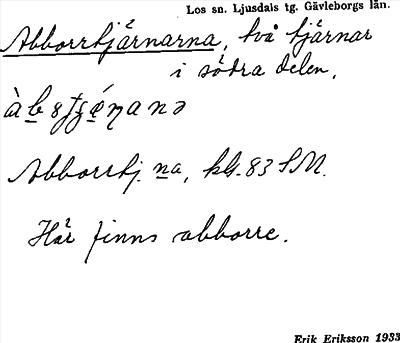 Los sn. Ljusdals tg. Gävleborgs län.
Abborrtjärnarna, två tjärnar
i södra delen.
Abborrtj. na, kbl. 83 SM.
Här finns abborre.
Erik Eriksson 1933